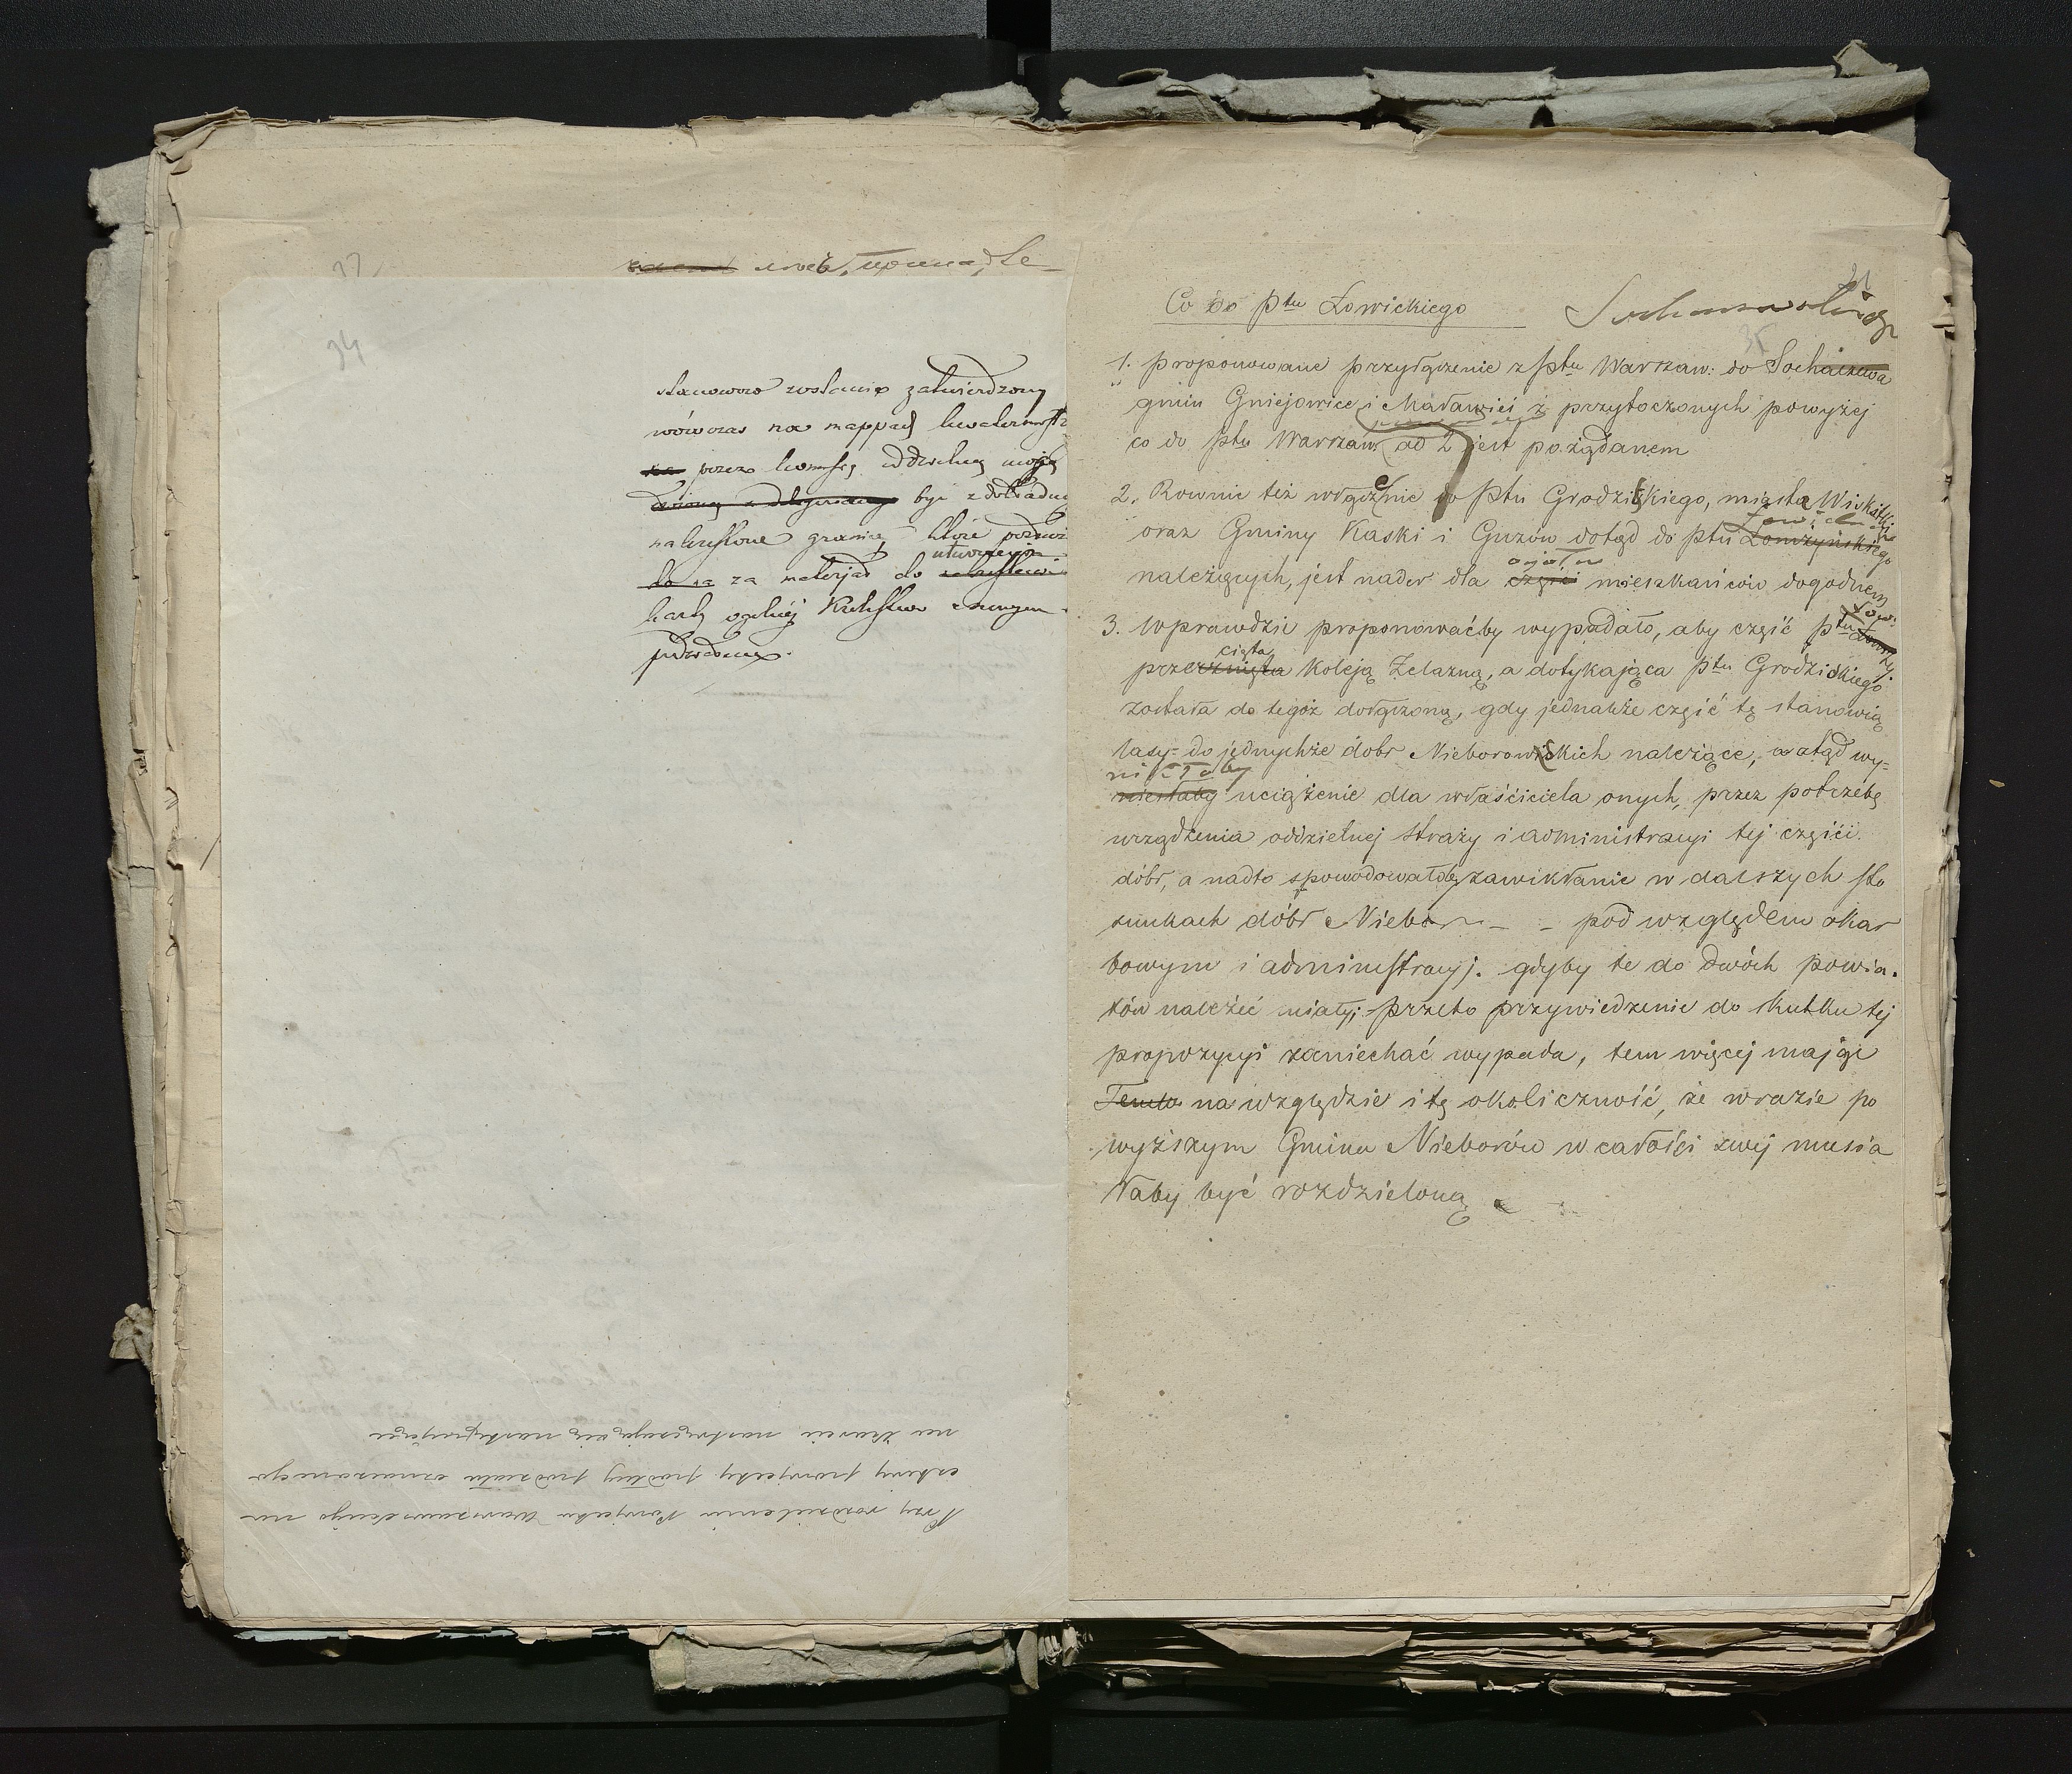 stanowczo zostanie zatwierdzony
wówczas na mappach kwatermistr
przez komisję oddzielną mogą
być z dokładną
nakreślone granice, które posłużą
za materjał do utworzenia
karty ogólnej Królestwa z nowym
podziałem.
Przy rozdzieleniu Powiatu Warszawskiego na
cztery powiaty podług podziału oznaczonego
na karcie nastręczają się następujące
Co do Ptu Łowickiego
1. proponowane przyłączenie z Ptu Warszaw: do Sochaczewa
gmin Gniejowice i z przytoczonych powyżej
co do Ptu Warszaw: ad 2 jest pożądanem
2. Rownie też włączenie do Ptu Grodziskiego, miasta Wiskitki
oraz Gminy Kaski i Guzów dotąd do Ptu Łowickiego
należących, jest nader dla ogółu mieszkańców dogodnem
3. Wprawdzie proponowaćby wypadało, aby część Ptu Łow:
przecięta Koleją Żelazną, a dotykająca Ptu Grodziskiego
została do tegoż dołączoną, gdy jednakże część tę stanowią
lasy do jednychże dóbr Nieborowskich należące, a ztąd wy-
nikłoby uciążenie dla właściciela onych, przez potrzebę
urządzenia oddzielnej straży i administracyi tej części
dóbr, a nadto spowodowałoby zawikłanie w dalszych sto
sunkach dóbr Niebor - - pod względem skar
bowym i administracyj. gdyby te do dwóch powia-
tów należeć miały; przeto przywiedzenie do skutku tej
propozycyi zaniechać wypada, tem więcej mając
na względzie i tę okoliczność, że w razie po
wyższym Gmina Nieborów w całości swej musia
łaby być rozdzieloną